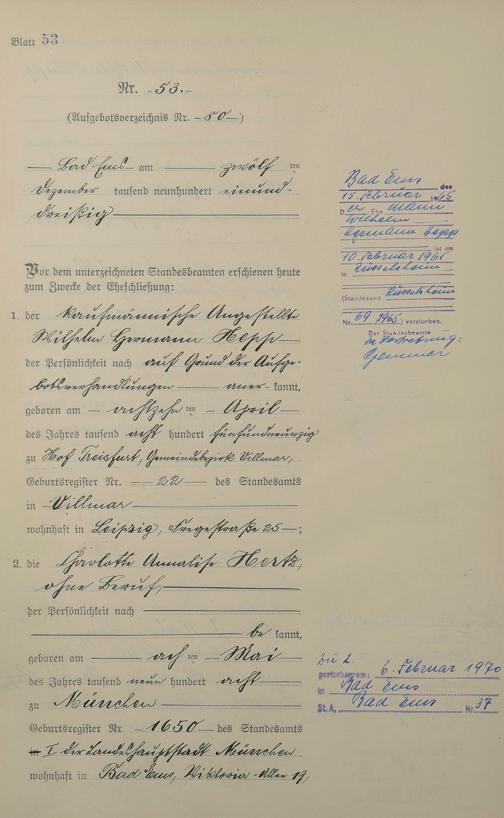 Blatt 53
Nr. -53.-
(Aufgebotsverzeichnis Nr. -80-)
Bad Ems am zwölf ten
Dezember tausend neunhundert einund-
dreißig
Vor dem unterzeichneten Standesbeamten erschienen heute
zum Zwecke der Eheschließung:
1. der kaufmännische Angestellte
Wilhelm Hermann Hepp
der Persönlichkeit nach auf Grund der Aufge-
botsverhandlungen aner- kannt,
geboren am achtzehn ten April
des Jahres tausend acht hundert fünfundneunzig
zu Hof Treisfurt, Gemeindebezirk Villmar,
Geburtsregister Nr. 22 des Standesamts
in Villmar
wohnhaft in Leipzig, Fregestraße 25 ;
2. die Charlotte Annalise Hertz,
ohne Beruf,
der Persönlichkeit nach
be kannt,
geboren am ach ten Mai
des Jahres tausend neun hundert acht
zu München
Geburtsregister Nr. 1650 des Standesamts
I der Landeshauptstadt München
wohnhaft in Bad Ems, Viktoria-Allee 19,
Bad Ems, den
15. Februar 1965
D er Ehemann
Wilhelm
Hermann Hepp
ist am
10. Februar 1965
in Rüsselsheim
(Standesamt Rüsselsheim
Nr. 69 1965) verstorben.
Der Standesbeamte
In Vertretung:
Zu 2.
gestorben am: 6. Februar 1970
in Bad Ems
St.A. Bad Ems Nr. 37